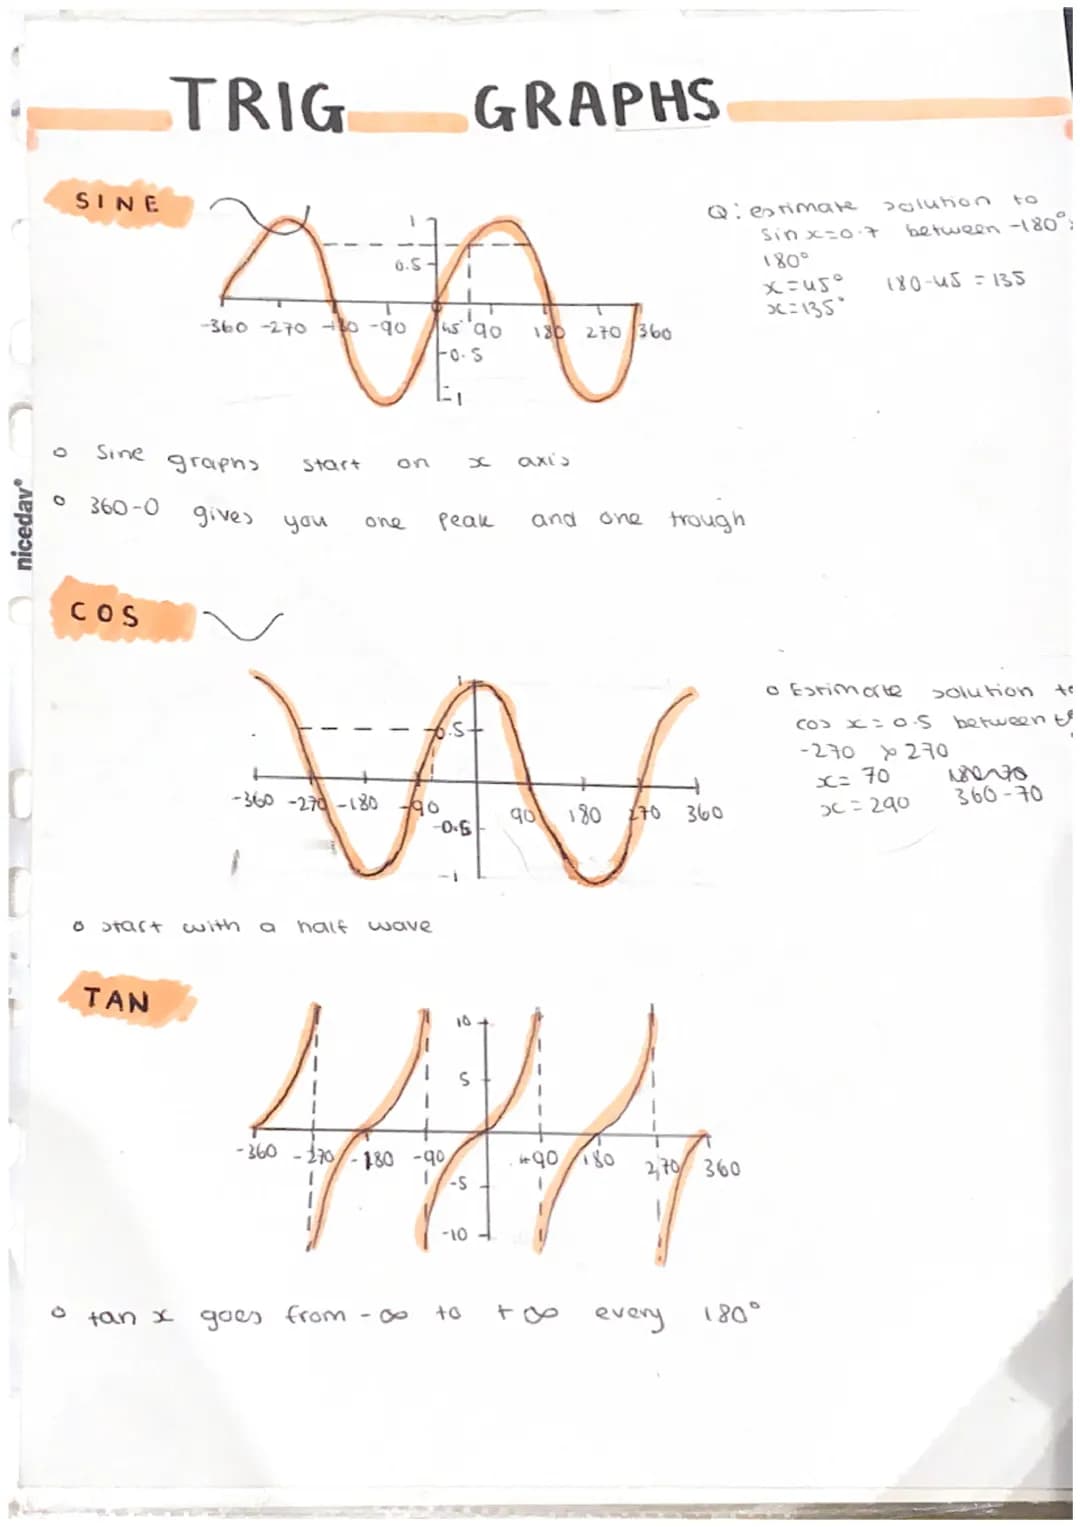 TRIG GRAPHS
SINE
1
0.5
-360 -270 -180 -90 45° 90 180 270 360
-0.5
-1
Q: estimate solution to
sin x=0.7 between -180°
180°
x=45° 180-45 = 135
x=135°
Sine graphs start on x axis
360-0 gives you one peak and one trough
nicedav
COS
1
0.5
-360 -270 -180 -90 90 180 270 360
-0.5
-1
Estimate solution to
cos x=0.5 between
-270 270
x= 70 180-70
x=290 360-70
start with a half wave
TAN
10
5
-360 -270 -180 -90 +90 180 270 360
-5
-10
tan x goes from -∞ to +∞ every 180°